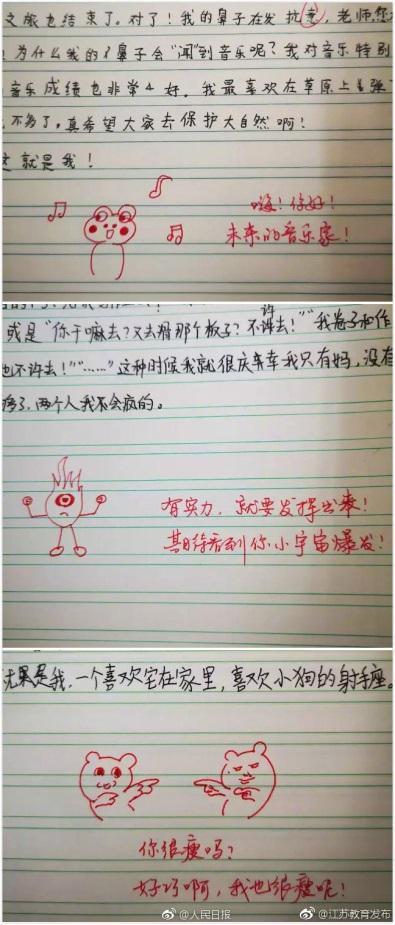 文旅也结束了。对了!我的鼻子在发抗走,老师您
!为什么我的鼻子会“闻”到音乐呢?我对音乐特别
音乐成绩也非常好。我最喜欢在草原上
不多了,真希望大家去保护大自然啊!
这就是我!
嗨!你好!
未来的音乐家!
或是“你干嘛去?又去滑那个板子?不许去!”“我卷子和作
也不许去!”“……”这种时候我就很庆幸我只有妈,没有
疼了.两个人我不会疯的。
有实力,就要发挥出来!
期待看到你小宇宙爆发!
尤果是我,一个喜欢宅在家里,喜欢小狗的射手座。
你很瘦吗?
好巧啊,我也很瘦呢!
@人民日报
@江苏教育发布